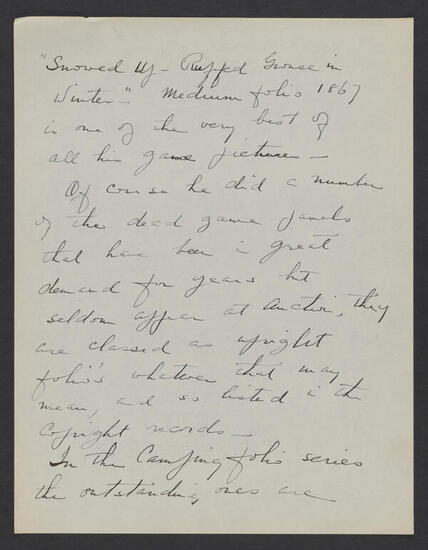 "Snowed Up - Ruffed Grouse in
Winter". Medium folio 1867
is one of the very best of
all his game pictures -
Of course he did a number
of the dead game panels
that have been in great
demand for years but
seldom appear at Auction, they
are classed as upright
folio's whatever that may
mean, and so listed in the
Copyright records -
In the Camping folio series
the outstanding ones are